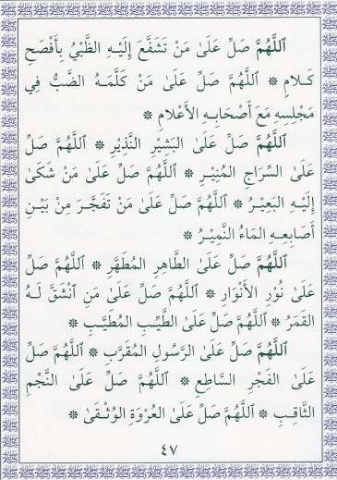 ٱللَّهُمَّ صَلِّ عَلَىٰ مَنْ تَشَفَّعَ إِلَيْهِ الظَّبْيُ بِأَفْصَحِ
كَلَامٍ * ٱللَّهُمَّ صَلِّ عَلَىٰ مَنْ كَلَّمَهُ الضَّبُّ فِي
مَجْلِسِهِ مَعَ أَصْحَابِهِ الْأَعْلَامِ *
ٱللَّهُمَّ صَلِّ عَلَىٰ البَشِيْرِ النَّذِيْرِ * ٱللَّهُمَّ صَلِّ
عَلَىٰ السِّرَاجِ المُنِيْرِ * ٱللَّهُمَّ صَلِّ عَلَىٰ مَنْ شَكَىٰ
إِلَيْهِ البَعِيْرُ * ٱللَّهُمَّ صَلِّ عَلَىٰ مَنْ تَفَجَّرَ مِنْ بَيْنِ
أَصَابِعِهِ المَاءُ النَّمِيْرُ *
ٱللَّهُمَّ صَلِّ عَلَىٰ الطَّاهِرِ المُطَهَّرِ * ٱللَّهُمَّ صَلِّ
عَلَىٰ نُوْرِ الْأَنْوَارِ * ٱللَّهُمَّ صَلِّ عَلَىٰ مَنِ ٱنْشَقَّ لَهُ
القَمَرُ * ٱللَّهُمَّ صَلِّ عَلَىٰ الطَّيِّبِ المُطَيَّبِ *
ٱللَّهُمَّ صَلِّ عَلَىٰ الرَّسُولِ المُقَرَّبِ * ٱللَّهُمَّ صَلِّ
عَلَىٰ الفَجْرِ السَّاطِعِ * ٱللَّهُمَّ صَلِّ عَلَىٰ النَّجْمِ
الثَّاقِبِ * ٱللَّهُمَّ صَلِّ عَلَىٰ العُرْوَةِ الوُثْقَىٰ *
٤٧